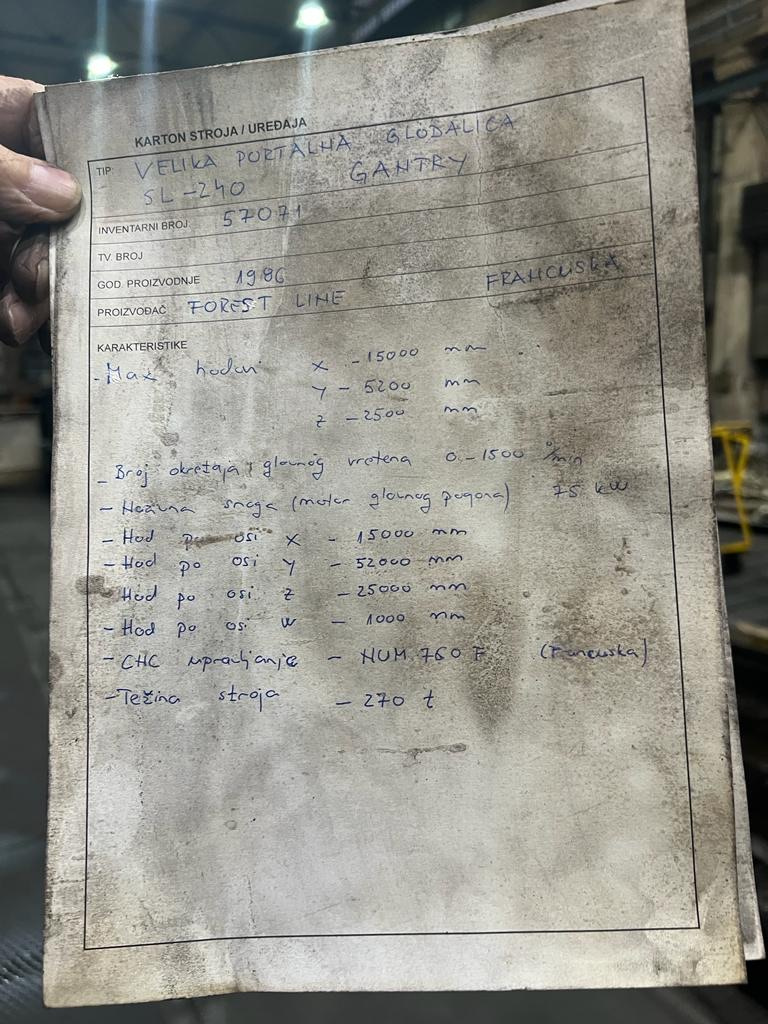 KARTON STROJA / UREĐAJA
TIP: VELIKA PORTALNA GLODALICA
SL-240 GANTRY
INVENTARNI BROJ: 57071
TV. BROJ
GOD. PROIZVODNJE 1986
PROIZVOĐAČ FOREST LINE FRANCUSKA
KARAKTERISTIKE
- Max hodovi X - 15000 mm
Y - 5200 mm
Z - 2500 mm
- Broj okretaja glavnog vretena 0-1500 °/min
- Nazivna snaga (motor glavnog pogona) 75 kW
- Hod po osi X - 15000 mm
- Hod po osi Y - 52000 mm
Hod po osi Z - 25000 mm
- Hod po osi W - 1000 mm
- CNC upravljanje - NUM 760 F (Francuska)
- Težina stroja - 270 t